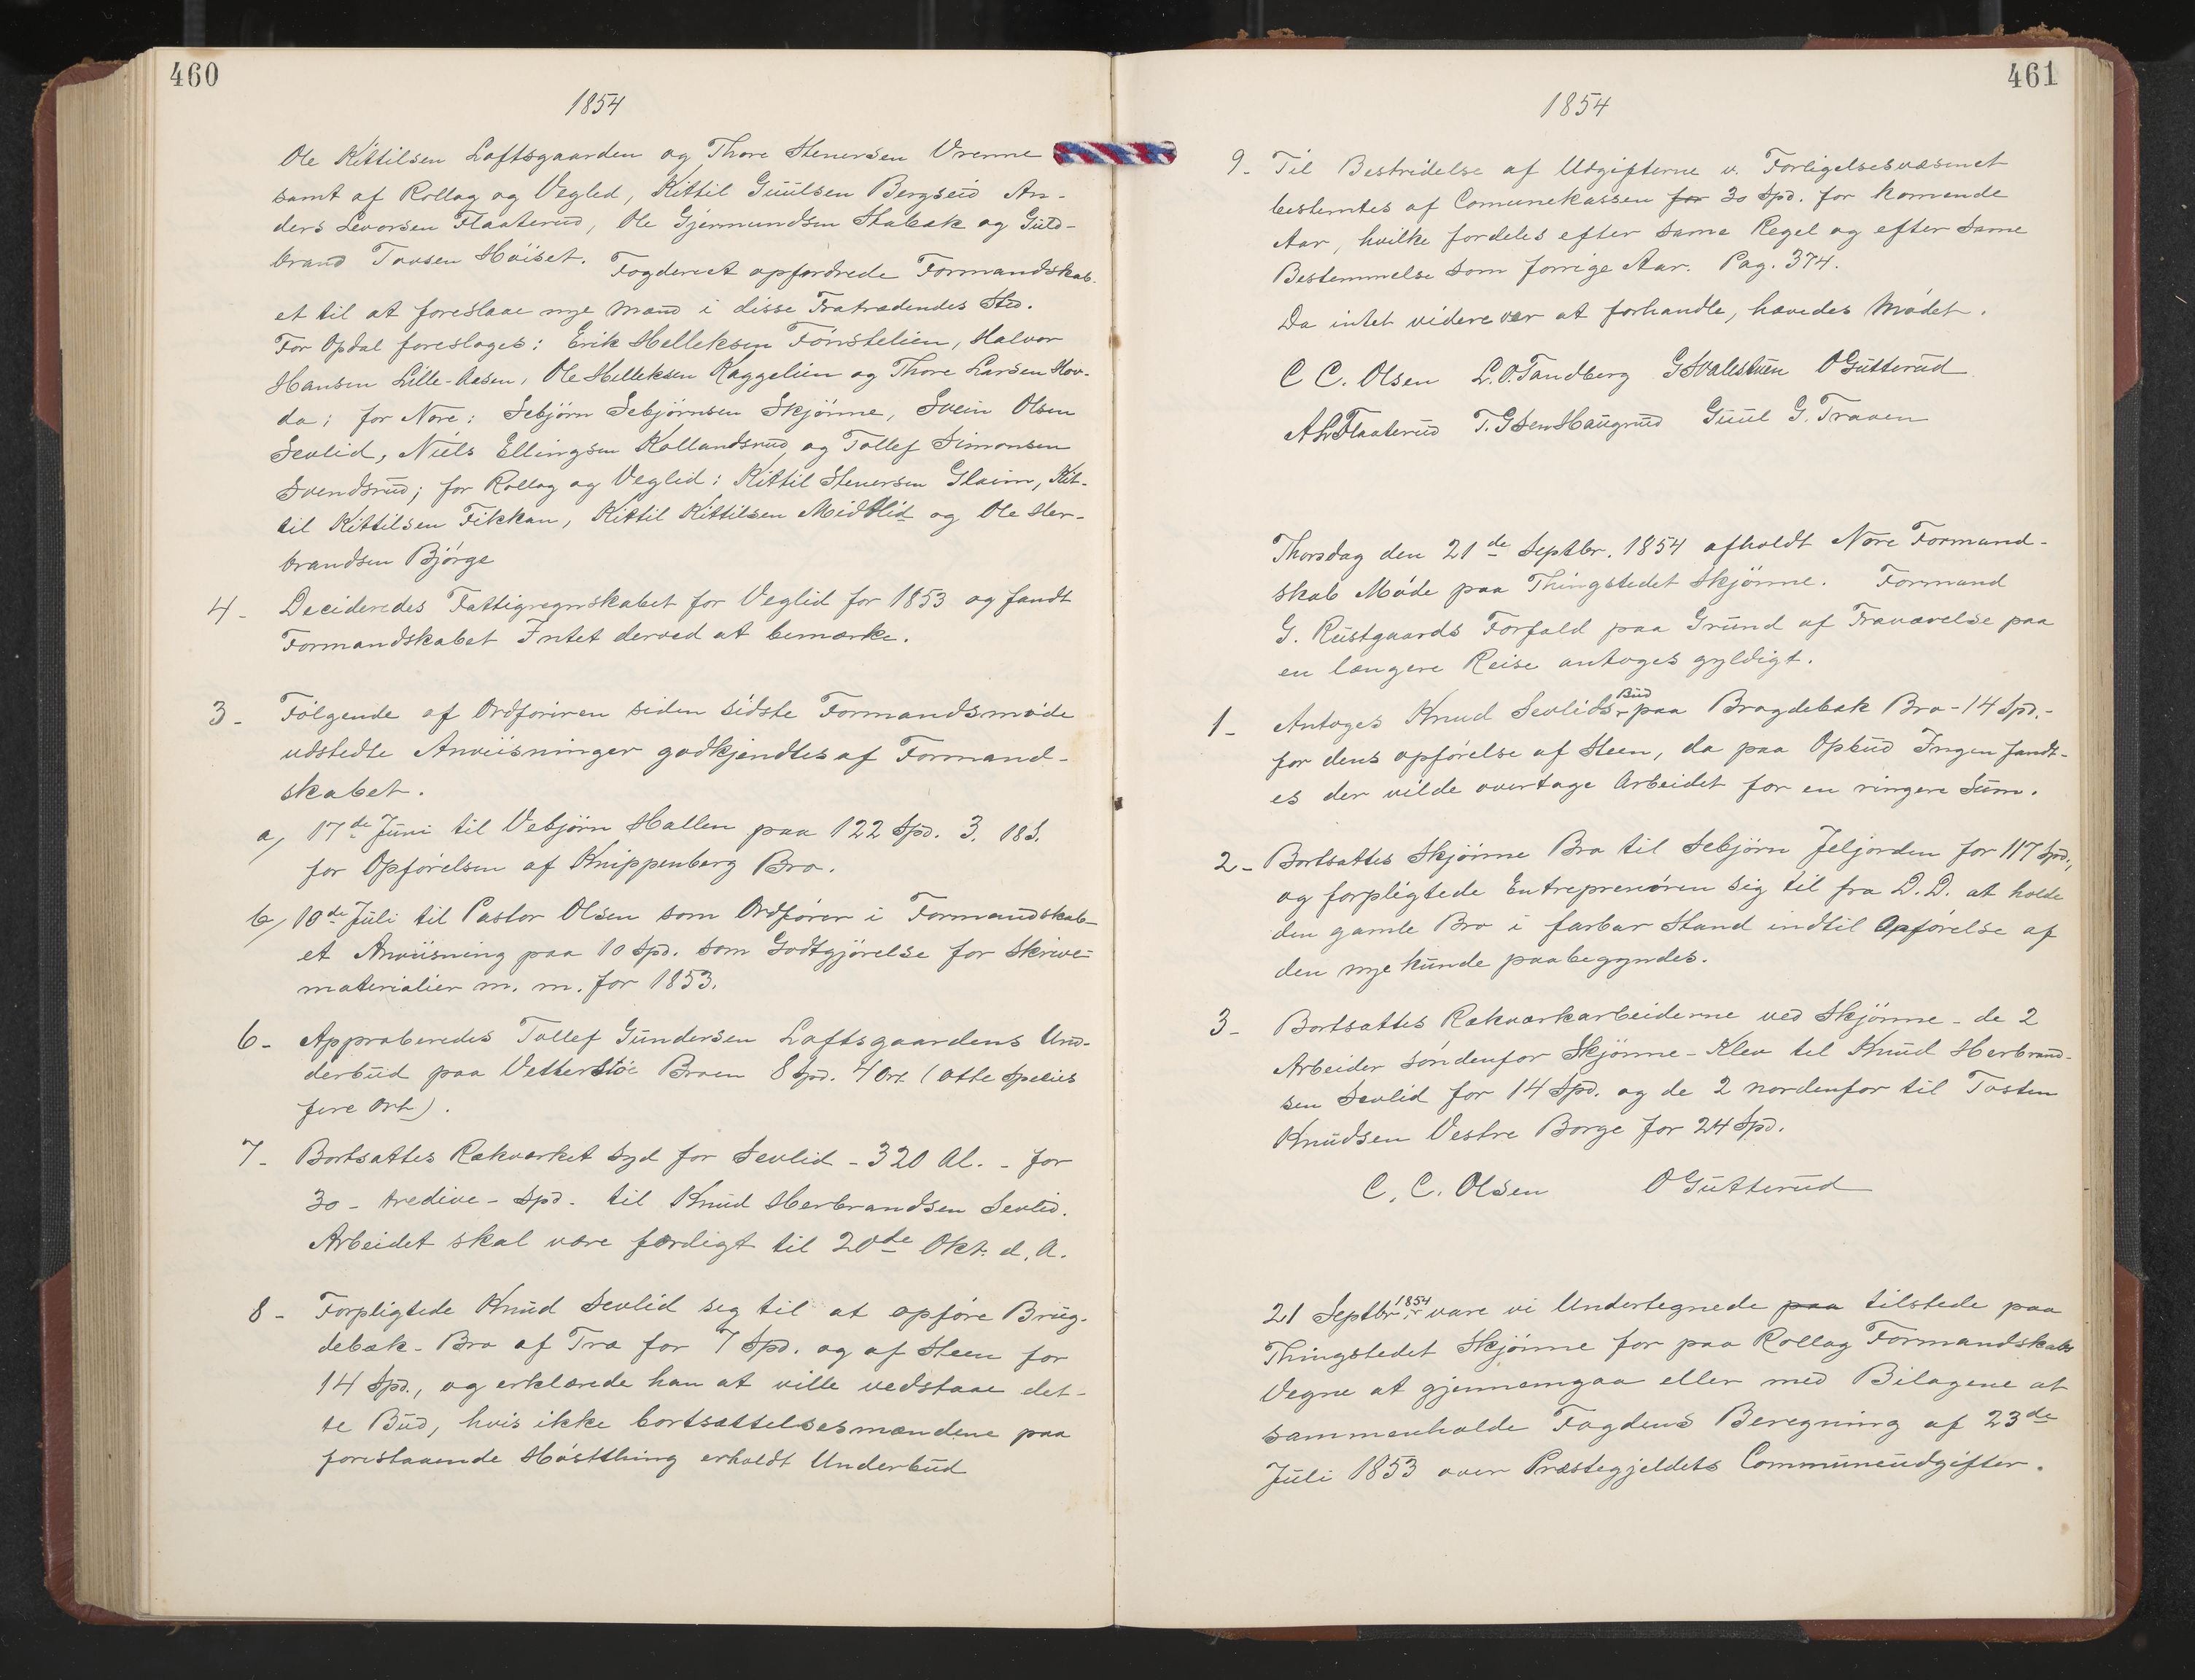 460
1854
Ole Kittilsen Loftsgaarden og Thore Stenersen Vrenne
samt af Rollag og Vegled, Kittil Guulsen Bergseid An-
ders Levorsen Flaaterud, Ole Gjermundsen Stabæk og Guld-
brand Tovsen Høiset. Fogderiet opfordrede Formandskab-
et til at foreslaae nye Mænd i disse Fratrædendes Sted.
For Opdal foresloges: Erik Helleksen Fønstelien, Halvor
Hansen Lille-Aasen, Ole Helleksen Raggelien og Thore Larsen Hov-
da; for Nore: Sebjørn Sebjørnsen Skjønne, Svein Olsen
Sevlid, Niels Ellingsen Kollandsrud og Tollef Simonsen
Svendsrud; for Rollag og Veglid: Kittil Stenersen Glaim, Kit-
til Kittilsen Fikkan, Kittil Kittilsen Midtlid og Ole Her-
brandsen Bjørge
4- Decideredes Fattigregnskabet for Veglid for 1853 og fandt
Formandskabet Intet derved at bemærke.
3- Følgende af Ordføriren siden sidste Formandsmøde
udstedte Anviisninger godkjendtes af Formand-
skabet.
a, 17de Juni til Vebjørn Hallen paa 122 Spd. 3. 18 S.
for Opførelsen af Knippenberg Bro.
b, 10de Juli til Pastor Olsen som Ordfører i Formandskab-
et Anviisning paa 10 Spd. som Godtgjørelse for Skrive-
materialier m. m. for 1853.
6- Approberedes Tollef Gundersen Loftsgaardens Un-
derbud paa Vetterstöe Broen 8 Spd. 4 Ort (otte Species
fire Ort).
7- Bortsattes Rækværket syd for Sevlid - 320 Al. - for
30 - tredive - Spd. til Knud Herbrandsen Sevlid.
Arbeidet skal være færdigt til 20de Okt. d. A.
8- Forpligtede Knud Sevlid seg til at opføre Brug-
debæk-Bro af Træ for 7 Spd. og af Steen for
14 Spd., og erklærede han at ville vedstaae det-
te Bud, hvis ikke bortsættelsesmændene paa
forestaaende Høstthing erholdt Underbud
461
1854
9- Til Bestridelse af Udgifterne v. Forligelsesvæsenet
bestemtes af Comunekassen for 30 Spd. for komende
Aar, hvilke fordeles efter same Regel og efter same
Bestemmelse som forrige Aar. Pag. 374.
Da intet videre var at forhandle, hævedes Mødet.
C C. Olsen L. O. Tandberg G Svalestuen O Gutterud
A L Flaaterud T. G Sen Haugrud Guul G. Traaen
Thorsdag den 21de Septbr. 1854 afholdt Nore Formand-
skab Møde paa Thingstedet Skjønne. Formand
G. Rustgaards Forfald paa Grund af Fraværelse paa
en længere Reise antoges gyldigt.
1- Antoges Knud Sevlids Bud paa Brogdebæk Bro - 14 Spd. -
for dens opførelse af Steen, da paa Opbud Ingen fandt-
es der vilde overtage Arbeidet for en ringere Sum.
2- Bortsattes Skjønne Bro til Sebjørn Jeljorden for 117 Spd.,
og forpligtede Entreprenören sig til fra D. D. at holde
den gamle Bro i farbar Stand indtil Opførelse af
den nye kunde paabegyndes.
3- Bortsattes Rækværkarbeiderne ved Skjønne - de 2
Arbeider søndenfor Skjønne-Klev til Knud Herbrand-
sen Sevlid for 14 Spd. og de 2 nordenfor til Tosten
Knudsen Vestre Borge for 24 Spd.
C. C. Olsen O Gutterud
21 Septbr. 1854 vare vi Undertegnede paa tilstede paa
Thingstedet Skjønne for paa Rollag Formandskabs
Vegne at gjennemgaa eller med Bilagene at
sammenholde Fogdens Beregning af 23de
Juli 1853 over Præstegjeldets Communeudgifter.